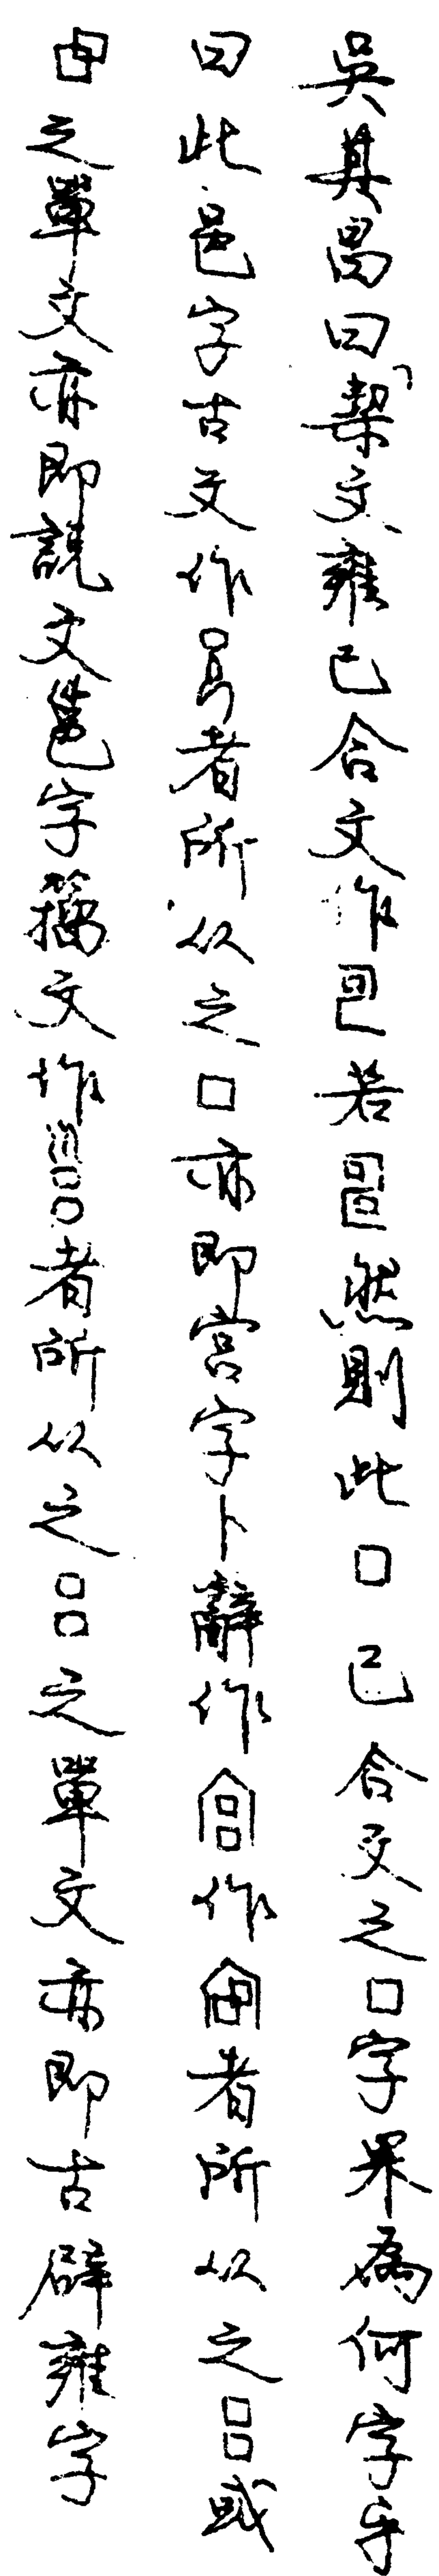 吳其昌曰「栔文雍己合文作若然則此口己合文之口字果為何字乎
曰此邑字古文作者所从之口亦即宮字卜辭作作者所从之吕或
之單文亦即説文邕字籀文作者所从之吕之單文亦即古辟雍字